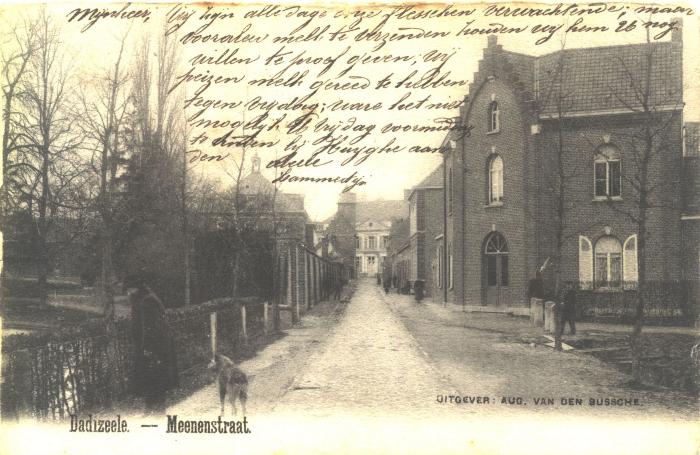 Mijnheer, Wij zijn alle dage onze flesschen verwachtende; maar
vooraleer melk te verzenden houden wij hem 26 nog
willen te proef geven; wij
peizen melk gereed te hebben
tegen vrijdag; ware het niet
mogelijk U vrijdag voormiddag
te bij Huyghe aan
den
Dadizeele. — Meenenstraat.
UITGEVER: AUG. VAN DEN BUSSCHE.